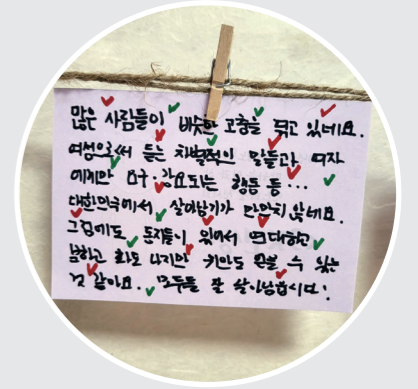 많은 사람들이 비슷한 고충을 묶고 있네요.
여성으로써 듣는 차별적인 말들과 여자
에게만 요구·강요되는 행동 등...
대한민국에서 살아남기가 만만치 않네요.
그럼에도 동지들이 있어서 연대하고
화도 나지만 수 있는
것 같아요. 모두들 잘 살아남읍시다!